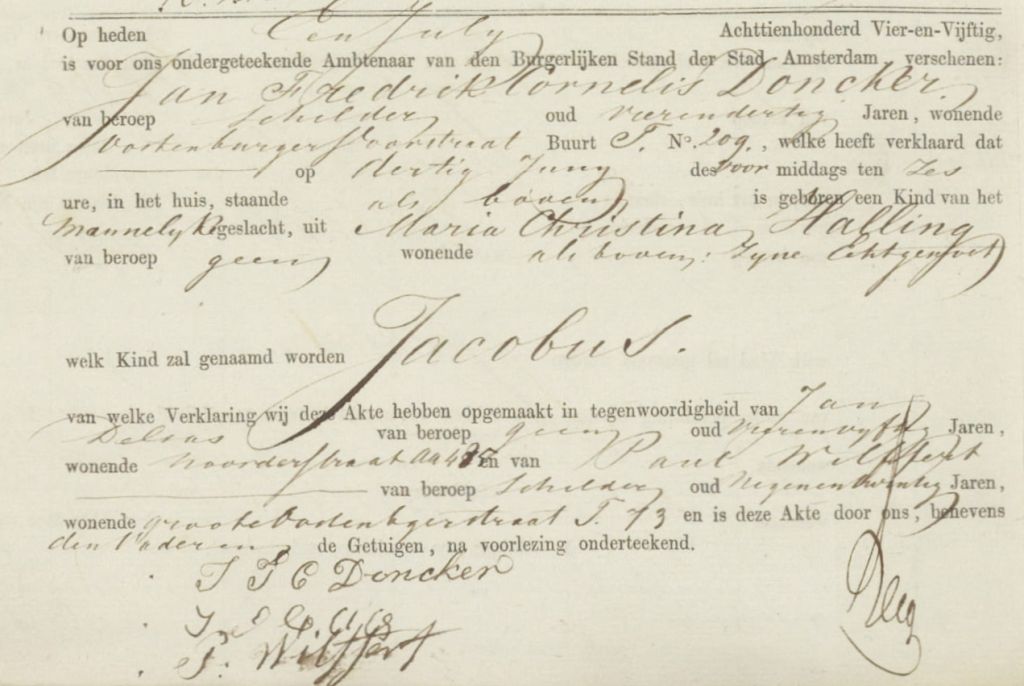 Op heden Een July Achttienhonderd Vier-en-Vijftig,
is voor ons ondergeteekende Ambtenaar van den Burgerlijken Stand der Stad Amsterdam verschenen:
Jan Fredrik Cornelis Doncker
van beroep Schilder oud vierendertig Jaren, wonende
Oostenburger Voorstraat Buurt T. No. 209., welke heeft verklaard dat
op dertig Juny des voor middags ten Zes
ure, in het huis, staande als boven is geboren een Kind van het
Mannelyk geslacht, uit Maria Christina Halling
van beroep geen wonende als boven: Zyne Echtgenoot
welk Kind zal genaamd worden Jacobus.
van welke Verklaring wij deze Akte hebben opgemaakt in tegenwoordigheid van Jan
Delsas van beroep geen oud vierenvyftig Jaren,
wonende Noorderstraat en van Paul Wilffert
van beroep Schilder oud Negenentwintig Jaren,
wonende groote Oostenbgerstraat T. 73 en is deze Akte door ons, benevens
den Vader en de Getuigen, na voorlezing onderteekend.
J F C Doncker
P. Wilffert